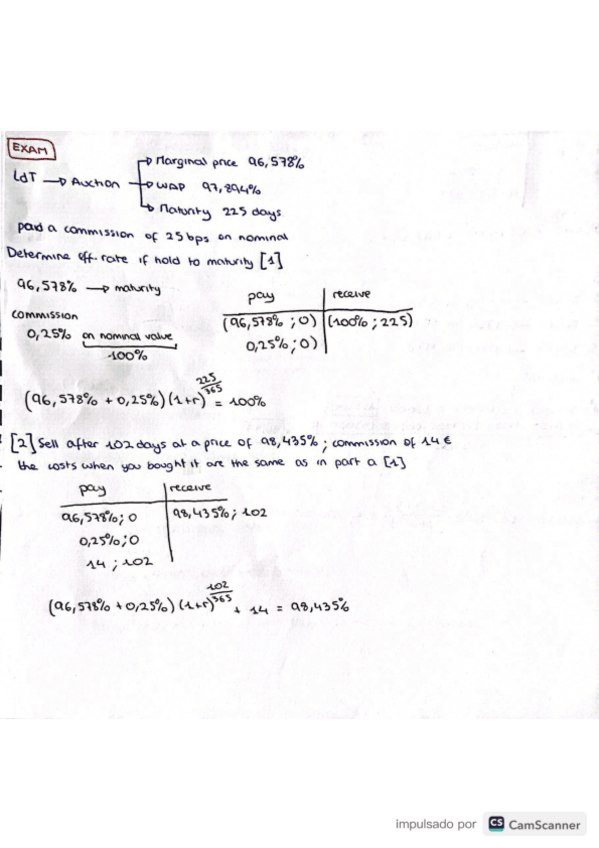 EXAM
LdT → Auction → Marginal price 96,578%
→ WAP 97,894%
→ Maturity 225 days
paid a commission of 25 bps on nominal
Determine eff. rate if hold to maturity [1]
96,578% → maturity
commission
0,25% on nominal value
100%
pay | receive
(96,578% ; 0) | (100% ; 225)
0,25% ; 0)
(96,578% + 0,25%) (1+r)^(225/365) = 100%
[2] Sell after 102 days at a price of 98,435% ; commission of 14 €
the costs when you bought it are the same as in part a [1]
pay | receive
96,578% ; 0 | 98,435% ; 102
0,25% ; 0
14 ; 102
(96,578% + 0,25%) (1+r)^(102/365) + 14 = 98,435%
impulsado por CS CamScanner